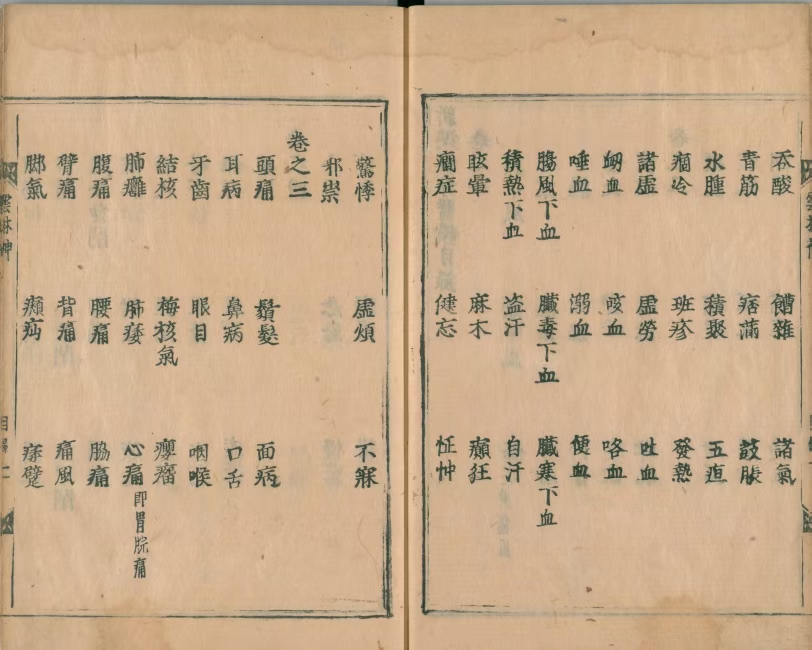 吞酸 饐雜 諸氣
青筋 痞滿 鼓脹
水腫 積聚 五疸
痼冷 班疹 發熱
諸虛 虛勞 吐血
衂血 咳血 咯血
唾血 溺血 便血
腸風下血 臟毒下血 臟寒下血
積熱下血 盗汗 自汗
眩暈 麻木 癲狂
癇症 健忘 怔忡
驚悸 虛煩 不寐
邪祟
卷之三
頭痛 鬚髮 面病
耳病 鼻病 口舌
牙齒 眼目 咽喉
結核 梅核氣 癭瘤
肺癰 肺痿 心痛即胃脘痛
腹痛 腰痛 脇痛
臂痛 背痛 痛風
脚氣 癩疝 痿躄